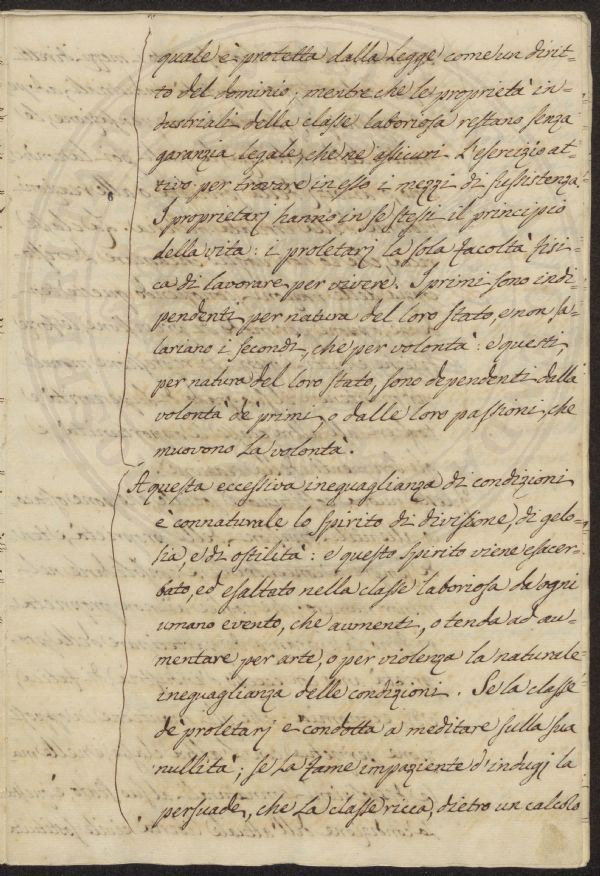 quale è protetta dalla Legge come un dirit=
to del dominio; mentre che le proprietà in=
dustriali della classe laboriosa restano senza
garanzia legale, che ne assicuri l'esercizio at=
tivo per trovare in esso i mezzi di sussistenza.
I proprietarj hanno in se stessi il principio
della vita: i proletarj la sola facoltà fisi=
ca di lavorare per vivere. I primi sono indi=
pendenti per natura del loro stato, e non sa=
lariano i secondi, che per volontà: e questi,
per natura del loro stato, sono dependenti dalla
volontà de' primi, o dalle loro passioni, che
muovono la volontà.
A questa eccessiva ineguaglianza di condizioni
è connaturale lo spirito di divisione, di gelo=
sia, e di ostilità: e questo spirito viene esacer=
bato, ed esaltato nella classe laboriosa da ogni
umano evento, che aumenti, o tenda ad au=
mentare per arte, o per violenza la naturale
ineguaglianza delle condizioni. Se la classe
de' proletarj è condotta a meditare sulla sua
nullità; se la fame impaziente d'indugj la
persuade, che la classe ricca, dietro un calcolo